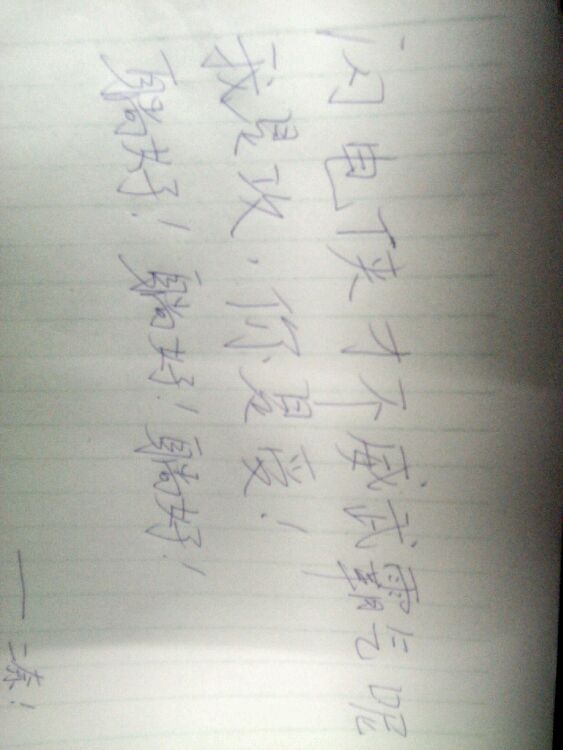 闪电侠才不威武霸气呢
我是攻，你是受！
躺好！躺好！躺好！